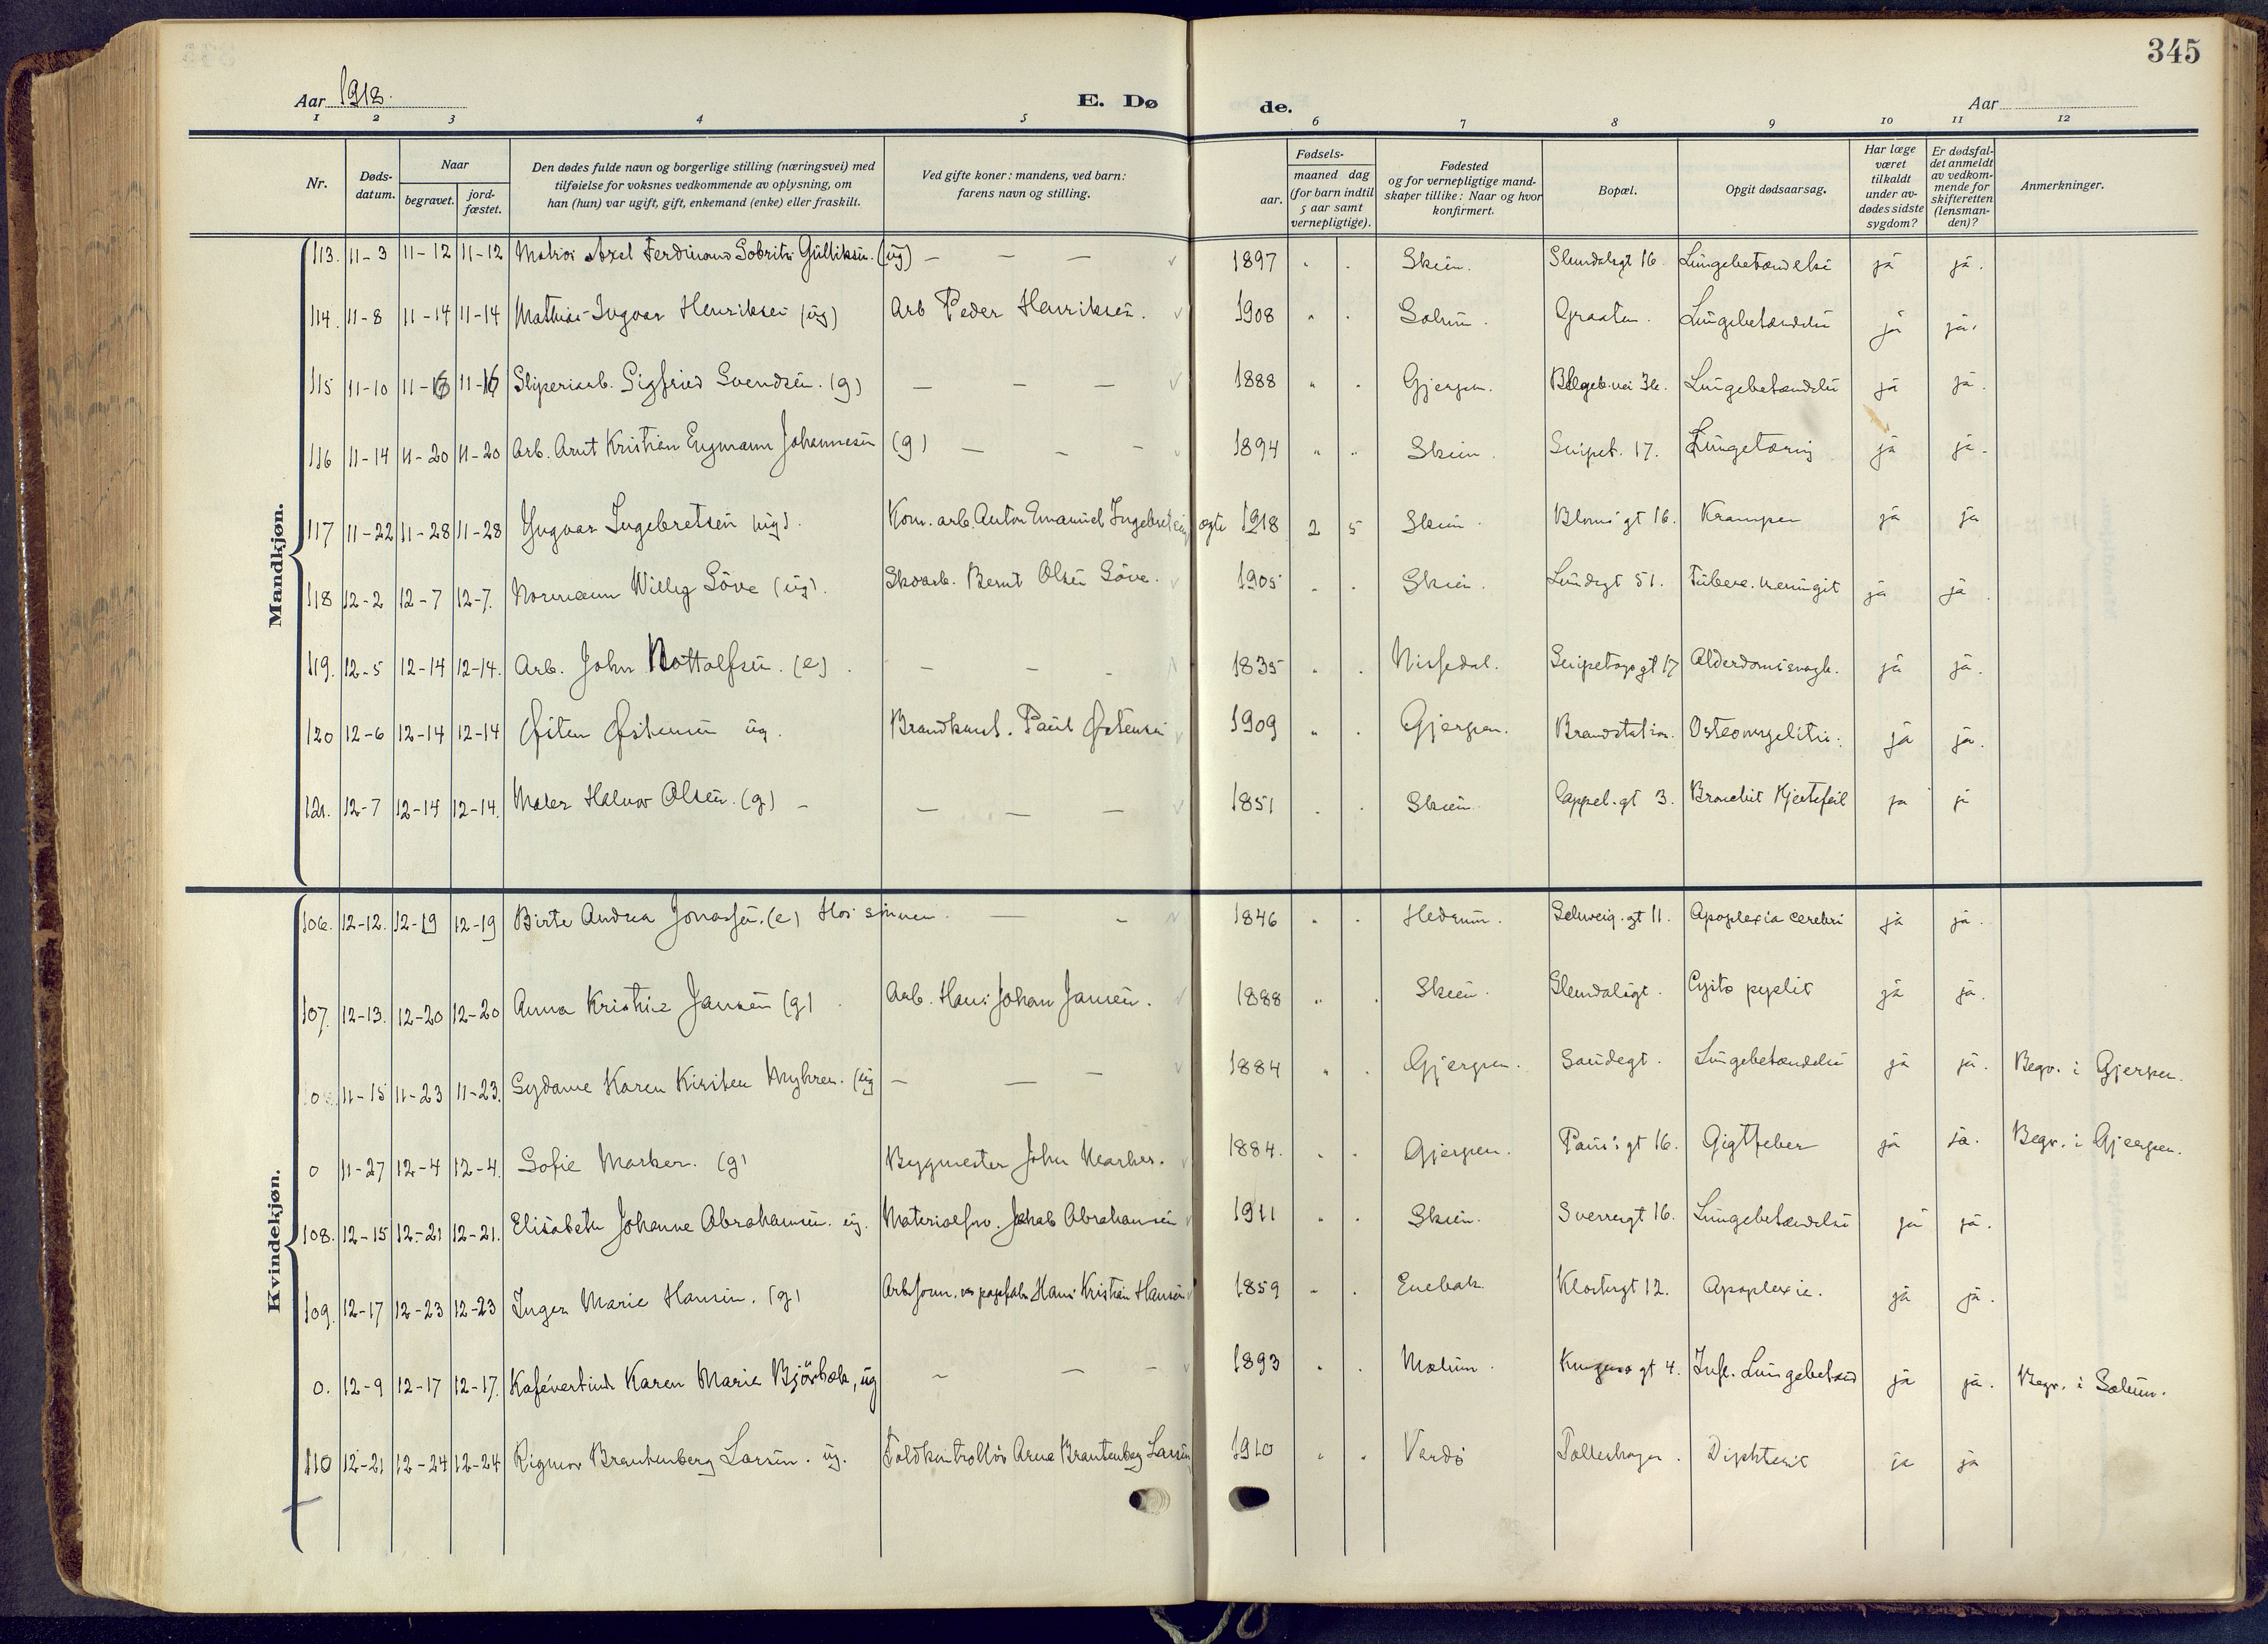 345
Aar 1918.
E. Dø
de.
Aar
1 2 3 4 5 6 7 8 9 10 11 12
Nr.
Døds-datum.
Naar
begravet.
jord-fæstet.
Den dødes fulde navn og borgerlige stilling (næringsvei) med
tilføielse for voksnes vedkommende av oplysning, om
han (hun) var ugift, gift, enkemand (enke) eller fraskilt.
Ved gifte koner: mandens, ved barn:
farens navn og stilling.
Fødsels-
aar.
maaned dag
(for barn indtil
5 aar samt
vernepligtige).
Fødested
og for vernepligtige mand-
skaper tillike: Naar og hvor
konfirmert.
Bopæl.
Opgit dødsaarsag.
Har læge
været
tilkaldt
under av-
dødes sidste
sygdom?
Er dødsfal-
det anmeldt
av vedkom-
mende for
skifteretten
(lensman-
den)?
Anmerkninger.
Mandkjøn.
113. 11-3 11-12 11-12 Matros Axel Ferdinand Gulliksen. (ug) — — — 1897 Skien. 16 Lungebetændelse ja ja.
114. 11-8 11-14 11-14 Mathias Ingvar Henriksen (ug) Arb Peder Henriksen. 1908 Solum. Graaten. Lungebetændelse ja ja.
115 11-10 11-16 11-16 Sliperiarb. Sigfried Svendsen. (g) — — — 1888 Gjerpen. Lungebetændelse ja ja.
116 11-14 11-20 11-20 Arb. Arnt Kristian Engmann Johannesen (g) — — — 1894 Skien. Snipet. 17. Lungetæring ja ja.
117 11-22 11-28 11-28 Yngvar Ingebretsen (ug). Kom. arb. Anton Emanuel Ingebretsen ægte 1918 2 5 Skien. Bloms gt 16. Kramper ja ja
118 12-2 12-7 12-7. Normann Willy Söve (ug). Skoarb. Bernt Olsen Söve. 1905 Skien. Lundegt 51. Tuberc. meningit ja ja.
119. 12-5 12-14 12-14. Arb. John Nottolfsen. (e). — — - 1835 Nissedal. Snipetorpgt 17 Alderdomssvagh. ja ja.
120 12-6 12-14 12-14 Østen Østensen ug. Brandkonst. Paul Østensen 1909 Gjerpen. Brandstation. Osteomyelitis. ja ja.
121. 12-7 12-14 12-14. Maler Halvor Olsen. (g) — — — — 1851 Skien Cappel.gt 3. Bronchit Hjertefeil ja ja
Kvindekjøn.
106. 12-12. 12-19 12-19 Birte Andrea Jonassen. (e) Hos sönnen. — - 1846 Hedrum. Schweig.gt 11. Apoplexia cerebri ja ja.
107. 12-13. 12-20 12-20 Anna Kristine Jansen (g) Arb. Hans Johan Jansen. 1888 Skien. Cysto pyelit ja ja.
0 11-15 11-23 11-23. Sydame Karen Kirsten Myhren. (ug — — — 1884 Gjerpen. Lungebetændelse ja ja. Begr. i Gjerpen.
0 11-27 12-4 12-4. Sofie Marker. (g) Bygmester John Marker. 1884. Gjerpen. Paus's gt 16. Gigtfeber ja ja. Begr. i Gjerpen.
108. 12-15 12-21 12-21. Elisabeth Johanne Abrahamsen. ug. Materialforv. Jakob Abrahamsen 1911 Skien. Sverresgt 16. Lungebetændelse ja ja.
109. 12-17 12-23 12-23 Inger Marie Hansen. (g) Arbform. Hans Kristian Hansen 1859 Enebak. Klostergt 12. Apoplexie. ja ja.
0. 12-9 12-17 12-17. Kafévertinde Karen Marie Björbæk, ug — — - 1893 Mælum. Kongens gt 4. Infl. Lungebetænd ja ja. Begr. i Solum.
110 12-21 12-24 12-24 Rigmor Brantenberg Larsen. ug. Toldkontrollör Arne Brantenberg Larsen 1910 Vardö Diphterit ja ja